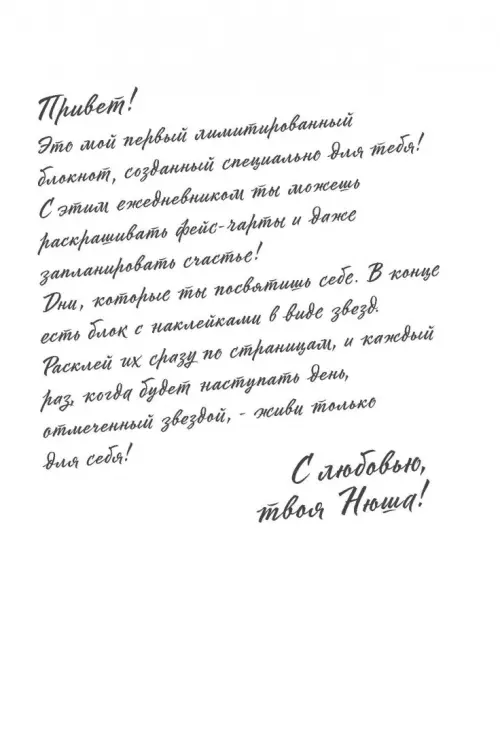 Привет!
Это мой первый лимитированный
блокнот, созданный специально для тебя!
С этим ежедневником ты можешь
раскрашивать фейс-чарты и даже
запланировать счастье!
Дни, которые ты посвятишь себе. В конце
есть блок с наклейками в виде звезд.
Расклей их сразу по страницам, и каждый
раз, когда будет наступать день,
отмеченный звездой, - живи только
для себя!
С любовью,
твоя Нюша!